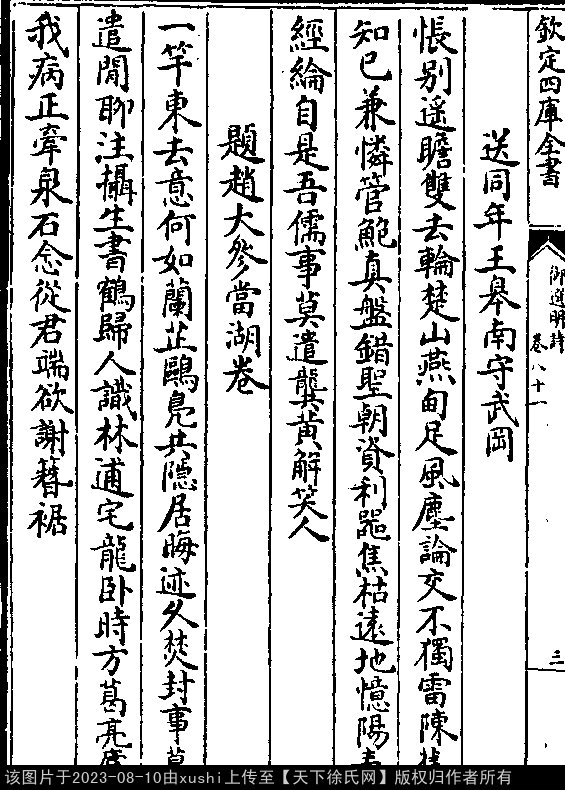 欽定四庫全書
御選明詩
卷八十一
三
送同年王舉南守武岡
悵別遥瞻雙去輪楚山燕甸足風塵論交不獨雷陳
知已兼憐管鮑真盤錯聖朝資利器焦枯遠地憶陽春
經綸自是吾儒事莫遣龔黄解笑人
題趙大參當湖卷
一竿東去意何如蘭芷鷗鳬共隱居晦迹久焚封事草
遣閒聊注攝生書鶴歸人識林逋宅龍卧時方葛亮廬
我病正牽泉石念從君端欲謝簪裾
该图片于2023-08-10由xushi上传至【天下徐氏网】版权归作者所有